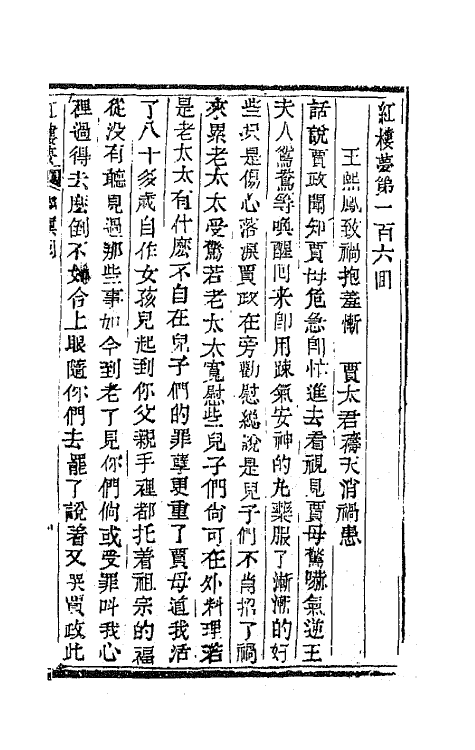 紅樓夢第一百六回
王熙鳳致禍抱羞慚　賈太君禱天消禍患
話說賈政聞知賈母危急卽忙進去看視見賈母驚嚇氣逆王
夫人鴛鴦等喚醒回來卽用疎氣安神的丸藥服了漸漸的好
些只是傷心落淚賈政在旁勸慰總說是兒子們不肖招了禍
來累老太太受驚若老太太寬慰些兒子們尙可在外料理若
是老太太有什麽不自在兒子們的罪孽更重了賈母道我活
了八十多歲自作女孩兒起到你父親手裡都托着祖宗的福
從沒有聽見過那些事如今到老了見你們倘或受罪叫我心
裡過得去麽倒不如合上眼隨你們去罷了說着又哭賈政此
紅樓夢